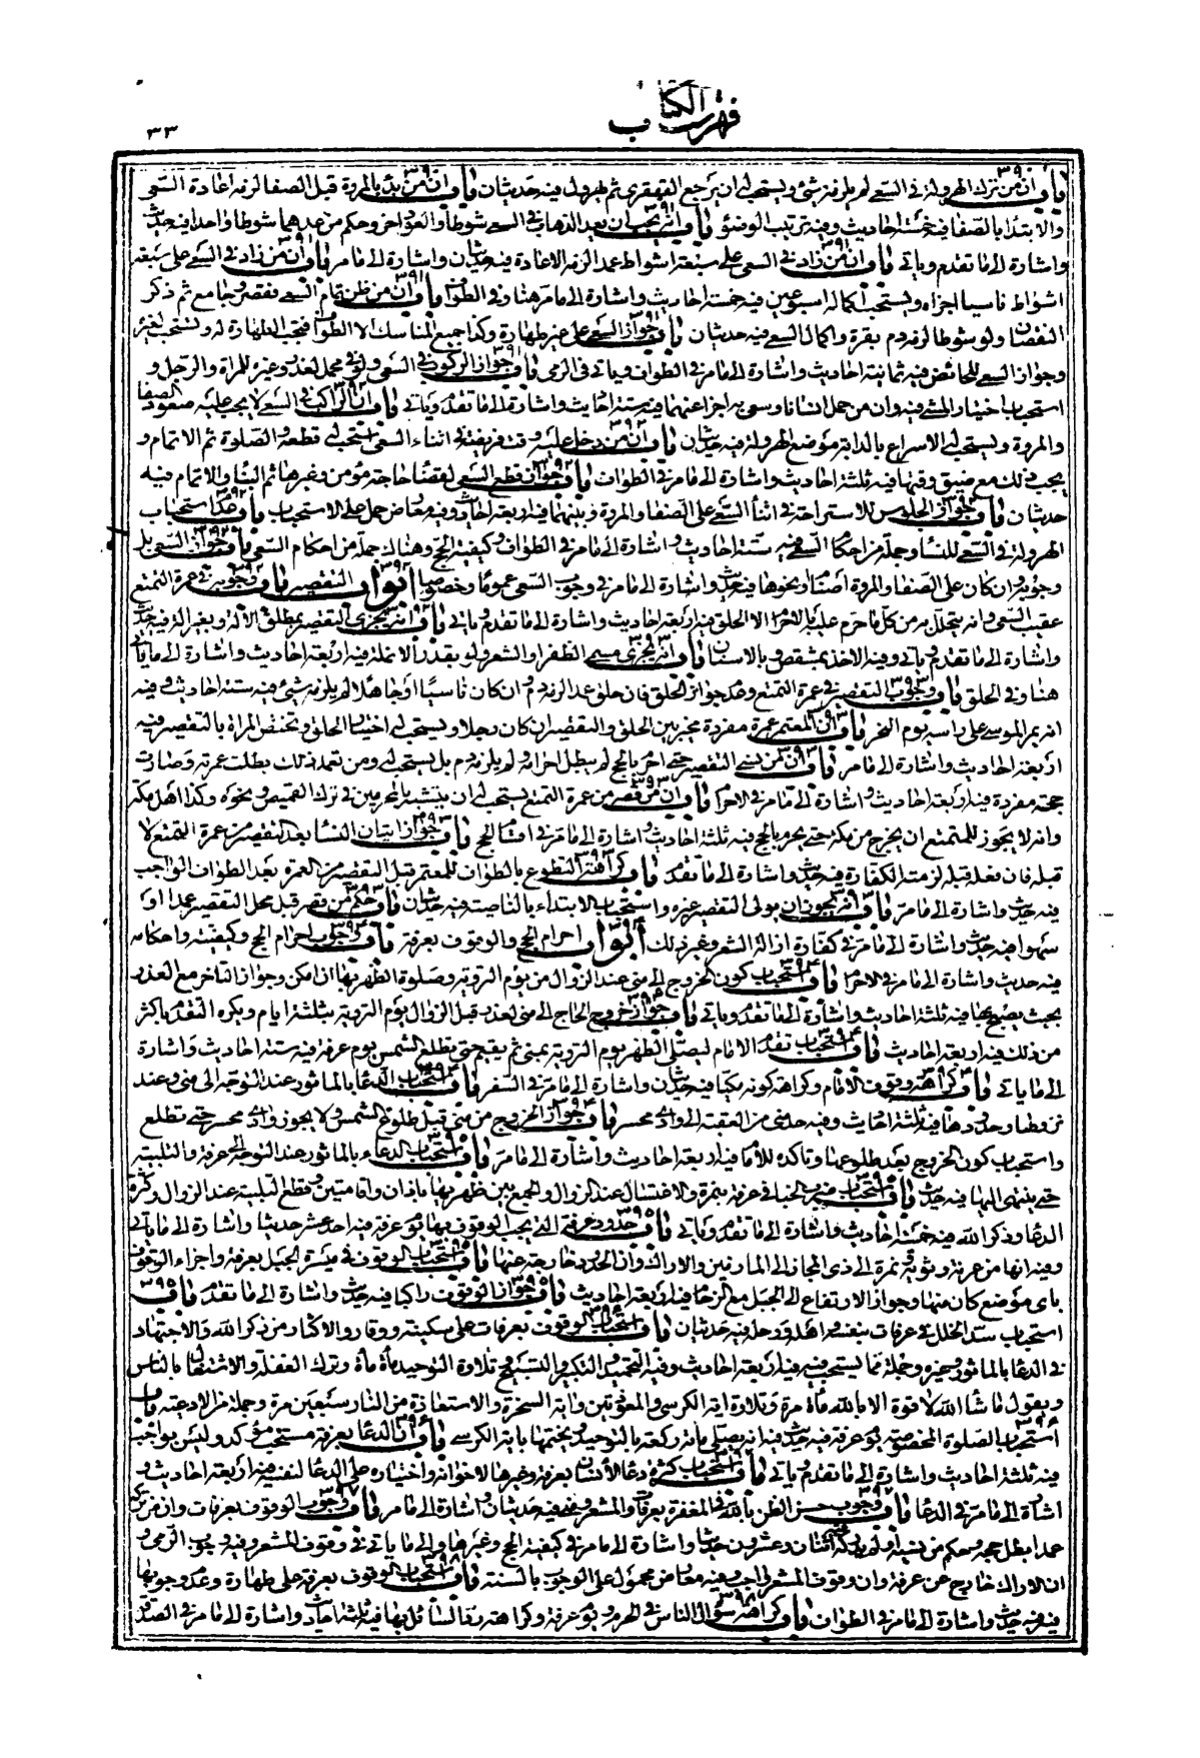 فهرست الكتاب
٣٣
باب ان من ترك الهرولة في السعي لم يلزمه شئ ويستحب له ان يرجع القهقرى ثم يهرول فيه حديثان باب ان من بدء بالمروة قبل الصفا لزمه اعادة السعى
والابتداء بالصفا فيه خمسة احاديث وفيه ترتيب الوضوء باب انه يجب ان يعد الذهاب في السعي شوطا والعود اخر وحكم من عدهما شوطا واحدا فيه حديث
واشارة الى ما تقدم وياتي باب ان من زاد في السعى على سبعة اشواط عمدا لزمه الاعادة فيه حديثان واشارة الى ما مر باب ان من زاد في السعي على سبعة
اشواط ناسيا اجزاه ويستحب اكماله اسبوعين فيه خمسة احاديث واشارة الى ما مر هنا وفي الطواف باب ان من ظن تمام السعي فقصر وجامع ثم ذكر
النقصان ولو شوطا لزمه دم بقرة واكمال السعي فيه حديثان باب جواز السعي على غير طهارة وكذا جميع المناسك الا الطواف فتجب الطهارة له وتستحب لغيره
وجواز السعي للحائض فيه ثمانية احاديث واشارة الى ما مر في الطواف وياتي في الرمي باب جواز الركوب في السعى ولو في محمل لعذر وغيره للمراة والرجل و
استحباب اختيار المشي فيه وان من حمل انسانا وسعى به اجزا عنهما فيه ستة احاديث واشارة الى ما تقدم وياتي باب ان الراكب في السعي لا يجب عليه صعود الصفا
والمروة ويستحب له الاسراع بالدابة موضع الهرولة فيه حديثان باب ان من دخل عليه وقت فريضة في اثناء السعي استحب له قطعه والصلوة ثم الاتمام و
يجب ذلك مع ضيق وقتها فيه ثلثة احاديث واشارة الى ما مر في الطواف باب جواز قطع السعى لقضاء حاجة مؤمن وغيرها ثم البناء والاتمام فيه
حديثان باب جواز الجلوس للاستراحة في اثناء السعي على الصفا والمروة وبينهما فيه اربعة احاديث وفيه معارض حمل على الاستحباب باب عدم استحباب
الهرولة في السعي للنساء وجملة من احكام السعي فيه ستة احاديث واشارة الى ما مر في الطواف وكيفية الحج وهناك جملة من احكام السعي باب جواز السعي بل
وجوبه وان كان على الصفا والمروة اصنام ونحوها فيه حديث واشارة الى ما مر في وجوب السعى عموما وخصوصا ابواب التقصير باب وجوبه في عمرة التمتع
عقيب السعى وانه يتحلل به من كل ما حرم عليه بالاحرام الا الحلق فيه اربعة احاديث واشارة الى ما تقدم وياتي باب انه يجزي التقصير بمطلق الالة وبغير الة فيه حديث
واشارة الى ما تقدم وياتي وفيه الاخذ بمشقص وبالاسنان باب انه يجزي مسمى الظفر او الشعر ولو بقدر الانملة فيه اربعة احاديث واشارة الى ما ياتي
هنا وفي الحلق باب وجوب التقصير في عمرة التمتع وعدم جواز الحلق فان حلق عمدا لزمه دم وان كان ناسيا او جاهلا لم يلزمه شئ فيه ستة احاديث وفيه
انه يمر الموسى على راسه يوم النحر باب ان المعتمر عمرة مفردة مخير بين الحلق والتقصير ان كان رجلا ويستحب له اختيار الحلق وتختص المراة بالتقصير فيه
اربعة احاديث واشارة الى ما مر باب ان من نسي التقصير حتى احرم بالحج لم يبطل احرامه ولم يلزمه دم بل يستحب له ومن تعمد ذلك بطلت عمرته وصارت
حجته مفردة فيه اربعة احاديث واشارة الى ما مر في الاحرام باب ان من قصر من عمرة التمتع يستحب له ان يتشبه بالمحرمين في ترك القميص ونحوه وكذا اهل مكة
وانه لا يجوز للمتمتع ان يخرج من مكة حتى يحرم بالحج فيه ثلثة احاديث واشارة الى ما مر في اقسام الحج باب جواز اتيان النساء بعد التقصير من عمرة التمتع لا
قبله فان فعله قبله لزمته الكفارة فيه حديث واشارة الى ما تقدم باب كراهة التطوع بالطواف للمعتمر قبل التقصير من العمرة بعد الطواف الواجب
فيه حديث واشارة الى ما مر باب انه يجوز ان يولى التقصير غيره واستحباب الابتداء بالناصية فيه حديثان باب حكم من قصر قبل محل التقصير عمدا او
سهوا فيه حديث واشارة الى ما مر في كفارة ازالة الشعر وغير ذلك ابواب احرام الحج والوقوف بعرفة باب وجوب احرام الحج وكيفيته واحكامه
فيه حديث واشارة الى ما مر في الاحرام باب استحباب كون الخروج الى منى عند الزوال من يوم التروية وصلوة الظهر بها ان امكن وجواز التاخر مع العذر
بحيث يصبح بها فيه ثلثة احاديث واشارة الى ما تقدم وياتي باب جواز خروج الحاج الى منى لعذر قبل الزوال يوم التروية بثلثة ايام ويكره التقدم باكثر
من ذلك فيه اربعة احاديث باب استحباب تقدم الامام ليصلي الظهر يوم التروية بمنى ثم يقيم حتى تطلع الشمس يوم عرفة فيه ستة احاديث واشارة
الى ما ياتي باب كراهة وقوف الامام وكراهة كونه مكيا فيه حديثان واشارة الى ما مر في السفر باب استحباب الدعاء بالماثور عند التوجه الى منى وعند
نزولها وحدودها فيه ثلثة احاديث وفيه حد منى من العقبة الى وادي محسر باب جواز الخروج من منى قبل طلوع الشمس ولا يجوز وادي محسر حتى تطلع
واستحباب كون الخروج بعد طلوعها وتاكده للامام فيه اربعة احاديث واشارة الى ما مر باب استحباب الدعاء بالماثور عند التوجه الى عرفة والتلبية
حتى ينتهي اليها فيه حديث باب استحباب ضرب الخباء في عرفة بنمرة والاغتسال عند الزوال والجمع بين ظهريها باذان واقامتين وقطع التلبية عند الزوال وكثرة
الدعاء وذكر الله فيه خمسة احاديث واشارة الى ما تقدم وياتي باب حدود عرفة التي يجب الوقوف بها يوم عرفة فيه احد عشر حديثا واشارة الى ما ياتي
وفيه انها من عرنة وثوية ونمرة الى ذي المجاز الى المازمين والاراك وان الحدود خارجة عنها باب استحباب الوقوف في ميسرة الجبل بعرفة واجزاء الوقوف
باي موضع كان منها وجواز الارتفاع الى الجبل مع الزحام فيه اربعة احاديث باب جواز الوقوف راكبا فيه حديث واشارة الى ما تقدم باب
استحباب سد الخلل في عرفات بنفسه واهله ورحله فيه حديثان باب استحباب الوقوف بعرفات على سكينة ووقار والاكثار من ذكر الله والاجتهاد
في الدعاء بالماثور وغيره وجملة مما يستحب فيه فيه اربعة احاديث وفيه التحميد والتكبير والتسبيح وتلاوة التوحيد مأة مأة وترك الغفلة والاشتغال بالناس
ويقول ما شاء الله لا قوة الا بالله مأة مرة وتلاوة اية الكرسي والمعوذتين واية السخرة والاستعاذة من النار سبعين مرة وجملة من الادعية باب
استحباب الصلوة المخصوصة يوم عرفة فيه حديث فيه انه يصلى مائة ركعة بالتوحيد ويختمها باية الكرسي باب ان الدعاء بعرفة مستحب مؤكد وليس بواجب
فيه ثلثة احاديث واشارة الى ما تقدم وياتي باب استحباب كثرة دعاء الانسان بعرفة وغيرها لاخوانه واختياره على الدعاء لنفسه فيه اربعة احاديث و
اشارة الى ما مر في الدعاء باب وجوب حسن الظن بالله في المغفرة بعرفات والمشعر وغيره فيه حديثان واشارة الى ما مر باب وجوب الوقوف بعرفات وان من تركه
عمدا بطل حجه وحكم من نسيه او لم يدركه فيه اثنان وعشرون حديثا واشارة الى ما مر في كيفية الحج وغيرها والى ما ياتي في وقوف المشعر وفي وجوب الرمي و
ان الاراك خارج عن عرفة وان وقوف المشعر واجب وفيه معارض محمول على الوجوب بالسنة باب استحباب الوقوف بعرفة على طهارة وعدم وجوبها
فيه فيه حديث واشارة الى ما مر في الطواف باب كراهة سؤال الناس في الحرم ويوم عرفة وكراهة رد السائل بها فيه ثلثة احاديث واشارة الى ما مر في الصدقة